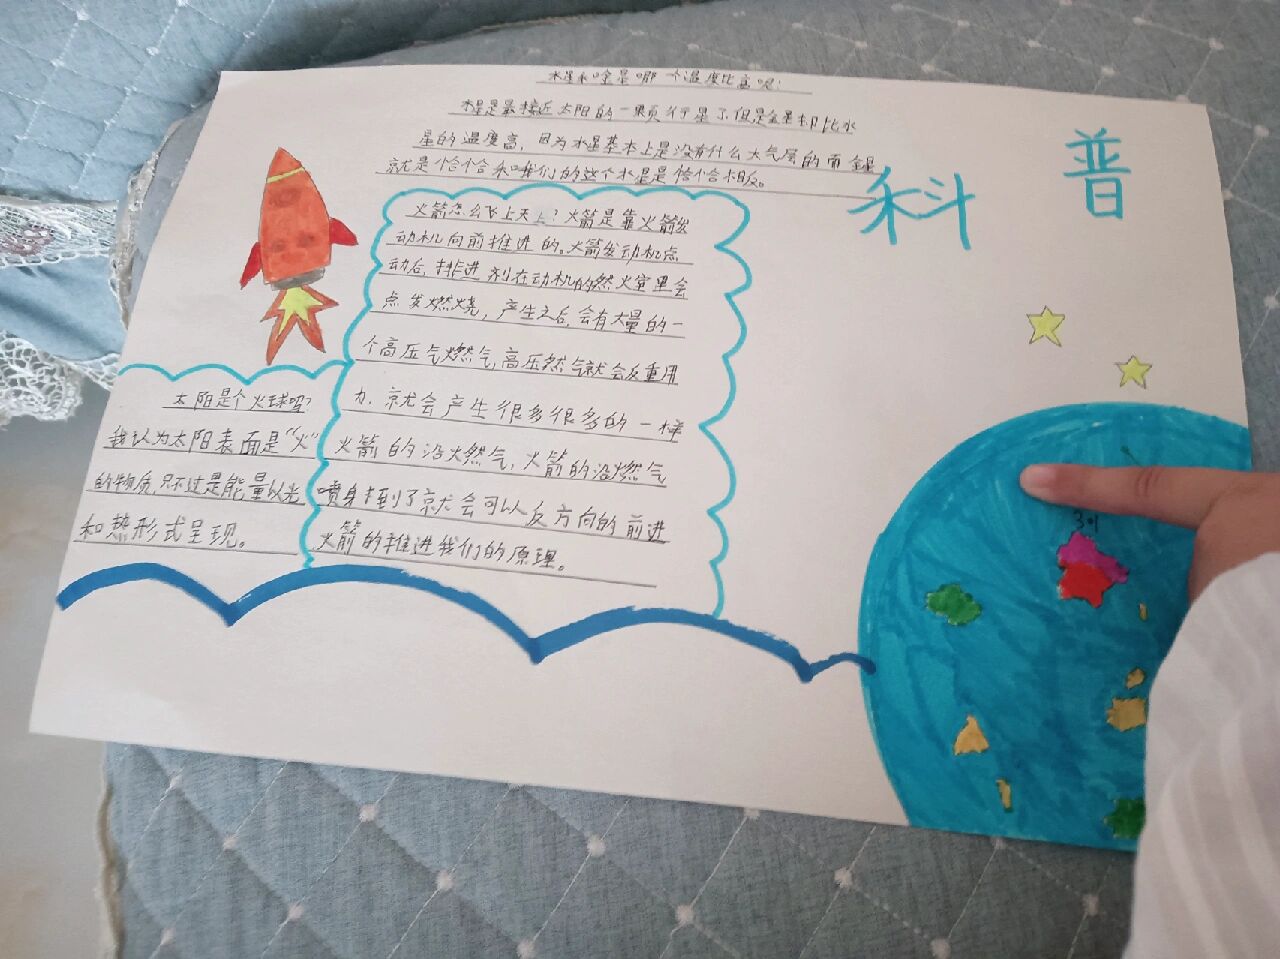 水星和金星哪个温度比高呢:
水星是最接近太阳的一颗行星了,但是金星却比水
星的温度高,因为水星基本上是没有什么大气层的而金星
就是恰恰和我们的这个水星是恰恰相反。
科普
火箭怎么飞上天上?火箭是靠火箭发
动机向前推进的。火箭发动机点
动后,推进剂在动机的燃火室里会
点发燃烧,产生之后,会有大量的一
个高压气燃气,高压然气就会反重用
力.就会产生很多很多的一样
火箭的没燃气,火箭的没燃气
喷身到了就会可以反方向的前进
火箭的推进我们的原理。
太阳是个火球吗?
我认为太阳表面是“火”
的物质,只不过是能量以光
和热形式呈现。